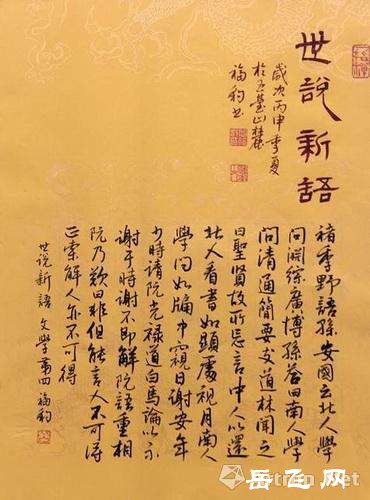 世說新語
歲次丙申季夏
於五臺山麓
福
褚季野語孫安國云北人學
問淵綜廣博孫荅曰南人學
問清通簡要支道林聞之
曰聖賢故所忘言中人以還
北人看書如顯處視月南人
學問如牖中窺日謝安年
少時請阮光祿道白馬論以示
謝于時謝不即解阮語重相
阮乃歎曰非但能言人不可得
正索解人亦不可得
世说新語 文學第四 福
岳飞网